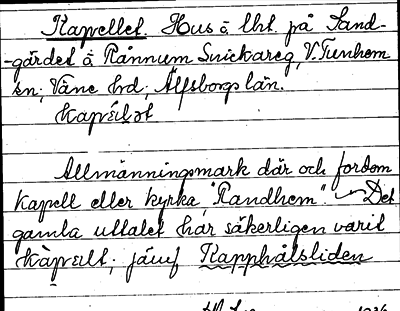 Kapellet. Hus å lht. på Sand-
-gärdet å Rånnum Snickareg, V. Tunhem
sn, Väne hd, Älfsborgs län.
kapä́l̥ət
Allmänningsmark där och fordom
kapell eller kyrka, "Randhem". Det
gamla uttalet har säkerligen varit
kàpällt; jämf Kapphålsliden
1936